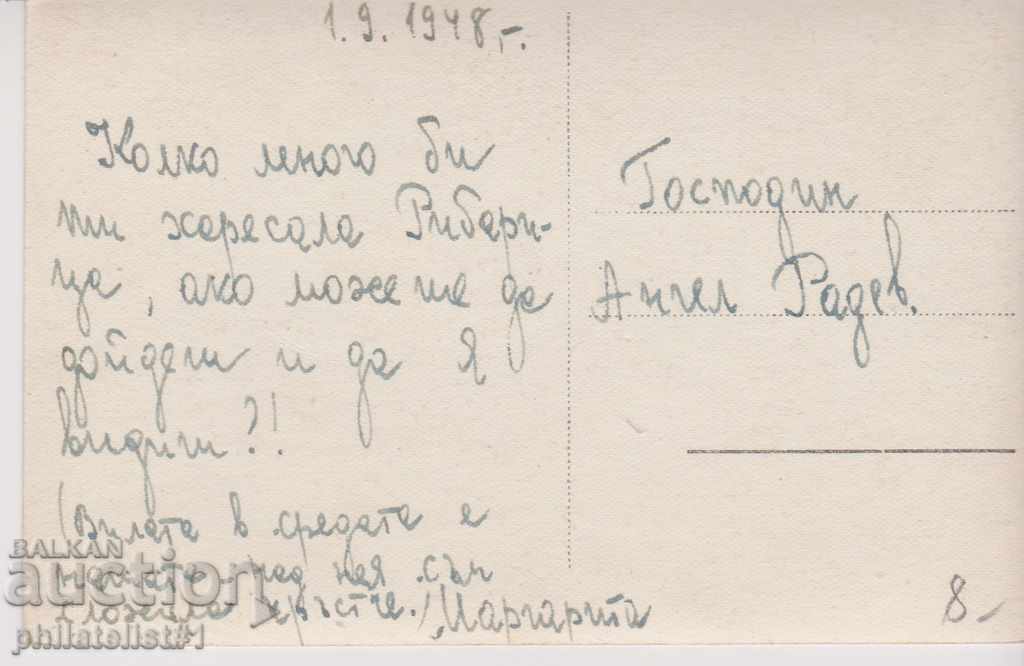 1. 9. 1948,-.
Колко много би
ти харесала Рибари-
ца, ако можеше да
дойдеш и да я
видиш?!
(Вилата в средата е
нашата - над нея съм
сложила кръстче.) Маргарита
Господин
Ангел Радев.
8.-
BALKAN
auction
philatelist#1